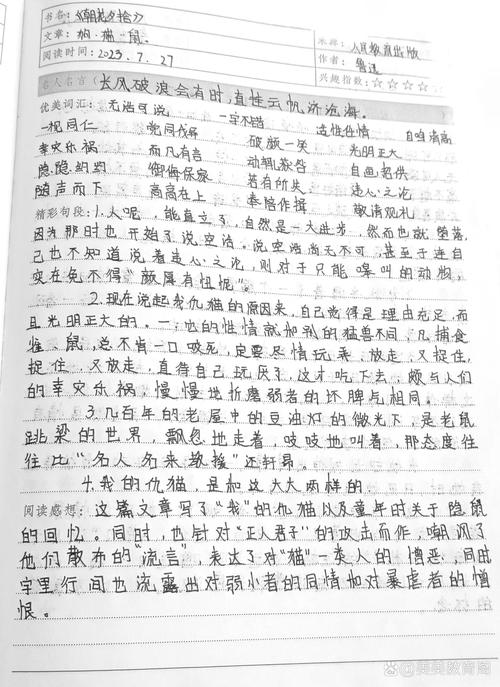 书名:《朝花夕拾》
文章: 狗·猫·鼠. 来源: 人民教育出版
阅读时间: 2023.7.27 作者: 鲁迅
兴趣指数: ☆☆☆☆
名人名言( 长风破浪会有时,直挂云帆济沧海。
优美词汇: 无话可说 一字不错 适性任情 自鸣清高
一视同仁 党同伐异 破颜一笑 光明正大
幸灾乐祸 而凡有言 动辄获咎 自画招供
隐隐约约 若有所失 违心之论
随声而下 高高在上 奉陪作揖 敬请观礼
精彩句段: 1.人呢,能直立了,自然是一大进步,然而也就堕落,
因为那时也开始了说空话。说空话尚无不可,甚至于连自
己也不知道说着违心之论,则对于只能嗥叫的动物,
实在免不得“颜厚有忸怩”。
2.现在说起我仇猫的原因来,自己觉得是理由充足,而
且光明正大的。一:它的性情就和别的猛兽不同,凡捕食
雀、鼠,总不肯一口咬死,定要尽情玩弄,放走,又捉住,
捉住,又放走,直待自己玩厌了,这才吃下去,颇与人们
的幸灾乐祸,慢慢地折磨弱者的坏脾与相同。
3.几百年的老屋中的豆油灯的微光下,是老鼠
跳梁的世界,飘忽地走着,吱吱地叫着,那态度往
往比“名人名来教授”还轩昂。
4.我的仇猫,是和这大大两样的
阅读感想: 这篇文章写了“我”的仇猫以及童年时关于隐鼠
的回忆。同时,也针对“正人君子”的攻击而作,嘲讽了
他们散布的“流言”,表达了对“猫”一类人的憎恶,同时
字里行间也流露出对弱小者的同情和对暴虐者的憎
恨。
美美教育阁